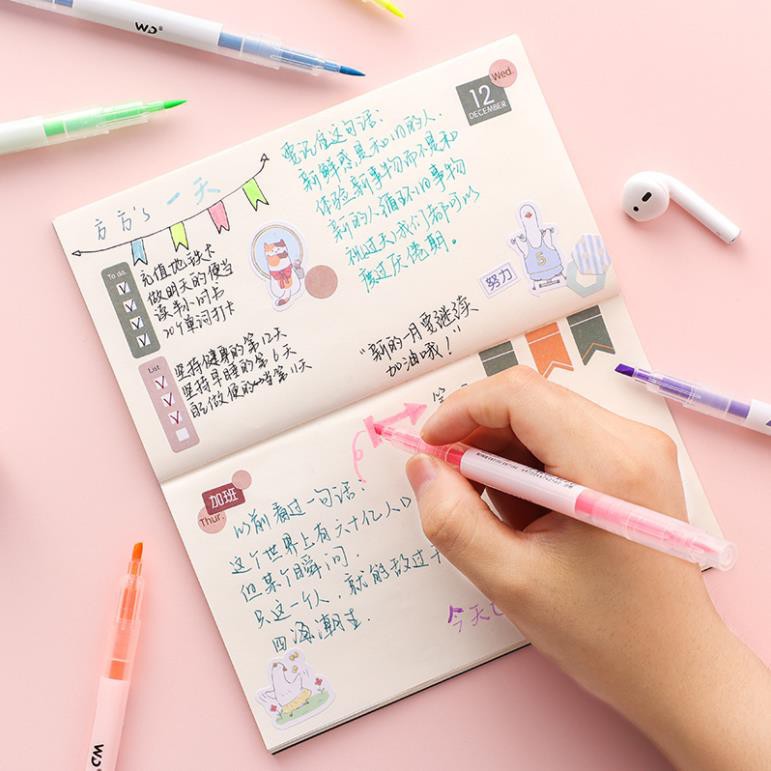 WD
Wed.
12
DECEMBER
要记住这句话：
新鲜感是和旧的人
体验新事物而不是和
新的人循环旧事物
度过厌倦期。
方方's 一天
To do.
充值地铁卡
做明天的便当
读半小时书
20个单词打卡
努力
List
坚持健身的第12天
坚持早睡的第6天
自己做便当第11天
"新的一月要继续
加油哦！"
加班
Thur.
以前看过一句话：
这个世界上有六十亿人口
但某个瞬间，
只这一个人，就能敌过千
四海潮生
今天
WD